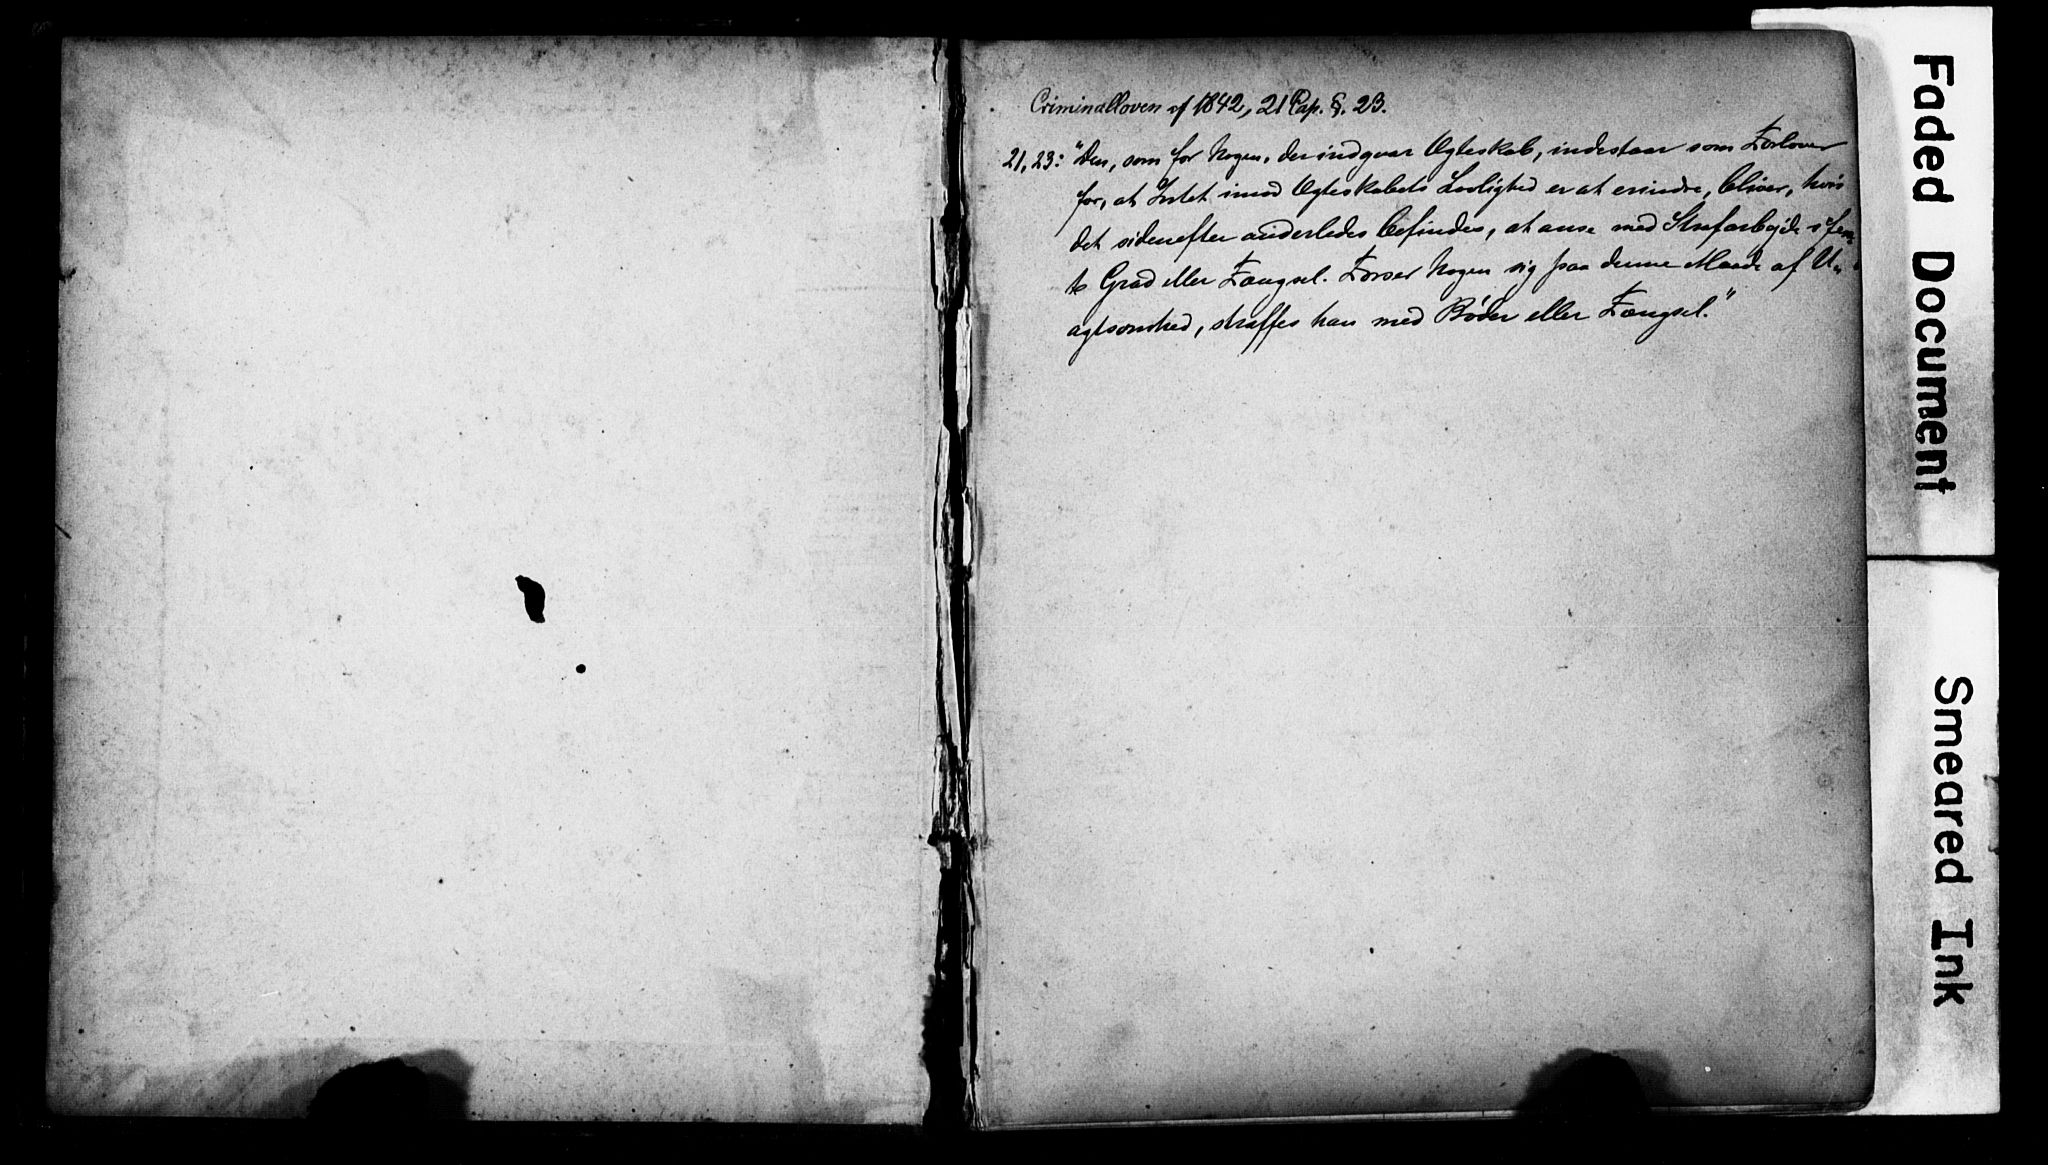 Criminalloven af 1842, 21 Cap. §. 23.
21, 23: "Den, som for Nogen, der indgaar Ægteskab, indestaar som Forlover
for, at Intet imod Ægteskabets Lovlighed er at erindre, bliver, hvis
det sidenefter anderledes befindes, at anse med Strafarbejde i fem-
te Grad eller Fængsel. Forser Nogen sig paa denne Maade af U-
agtsomhed, straffes han med Bøder eller Fængsel."
Faded Document
Smeared Ink